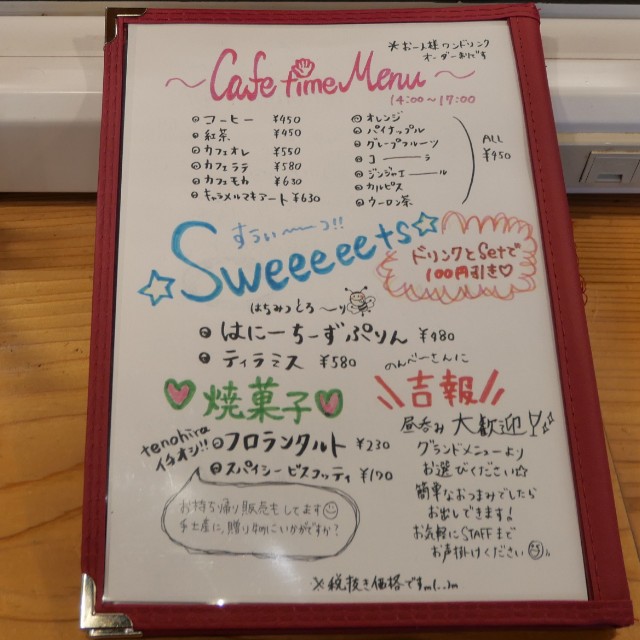 ※お一人様ワンドリンク
オーダー制です
～Cafe time Menu～
14:00～17:00
コーヒー ¥450
紅茶 ¥450
カフェオレ ¥550
カフェラテ ¥580
カフェモカ ¥630
キャラメルマキアート ¥630
オレンジ
パイナップル
グレープフルーツ
コーーーラ
ジンジャエーール
カルピス
ウーロン茶
ALL
¥450
すうぃーーつ!!
☆Sweeeeets☆
ドリンクとSetで
100円引き♡
はちみつとろ～り
はにーちーずぷりん ¥480
ティラミス ¥580
♡焼菓子♡
tenohira
イチオシ!!
フロランタルト ¥230
スパイシービスコッティ ¥170
お持ち帰り販売もしてます
手土産に、贈り物にいかがですか？
のんべーさんに
\\吉報//
昼呑み 大歓迎
グランドメニューより
お選びください☆
簡単なおつまみでしたら
お出しできます!
お気軽にSTAFFまで
お声掛けください
※税抜き価格ですm(..)m